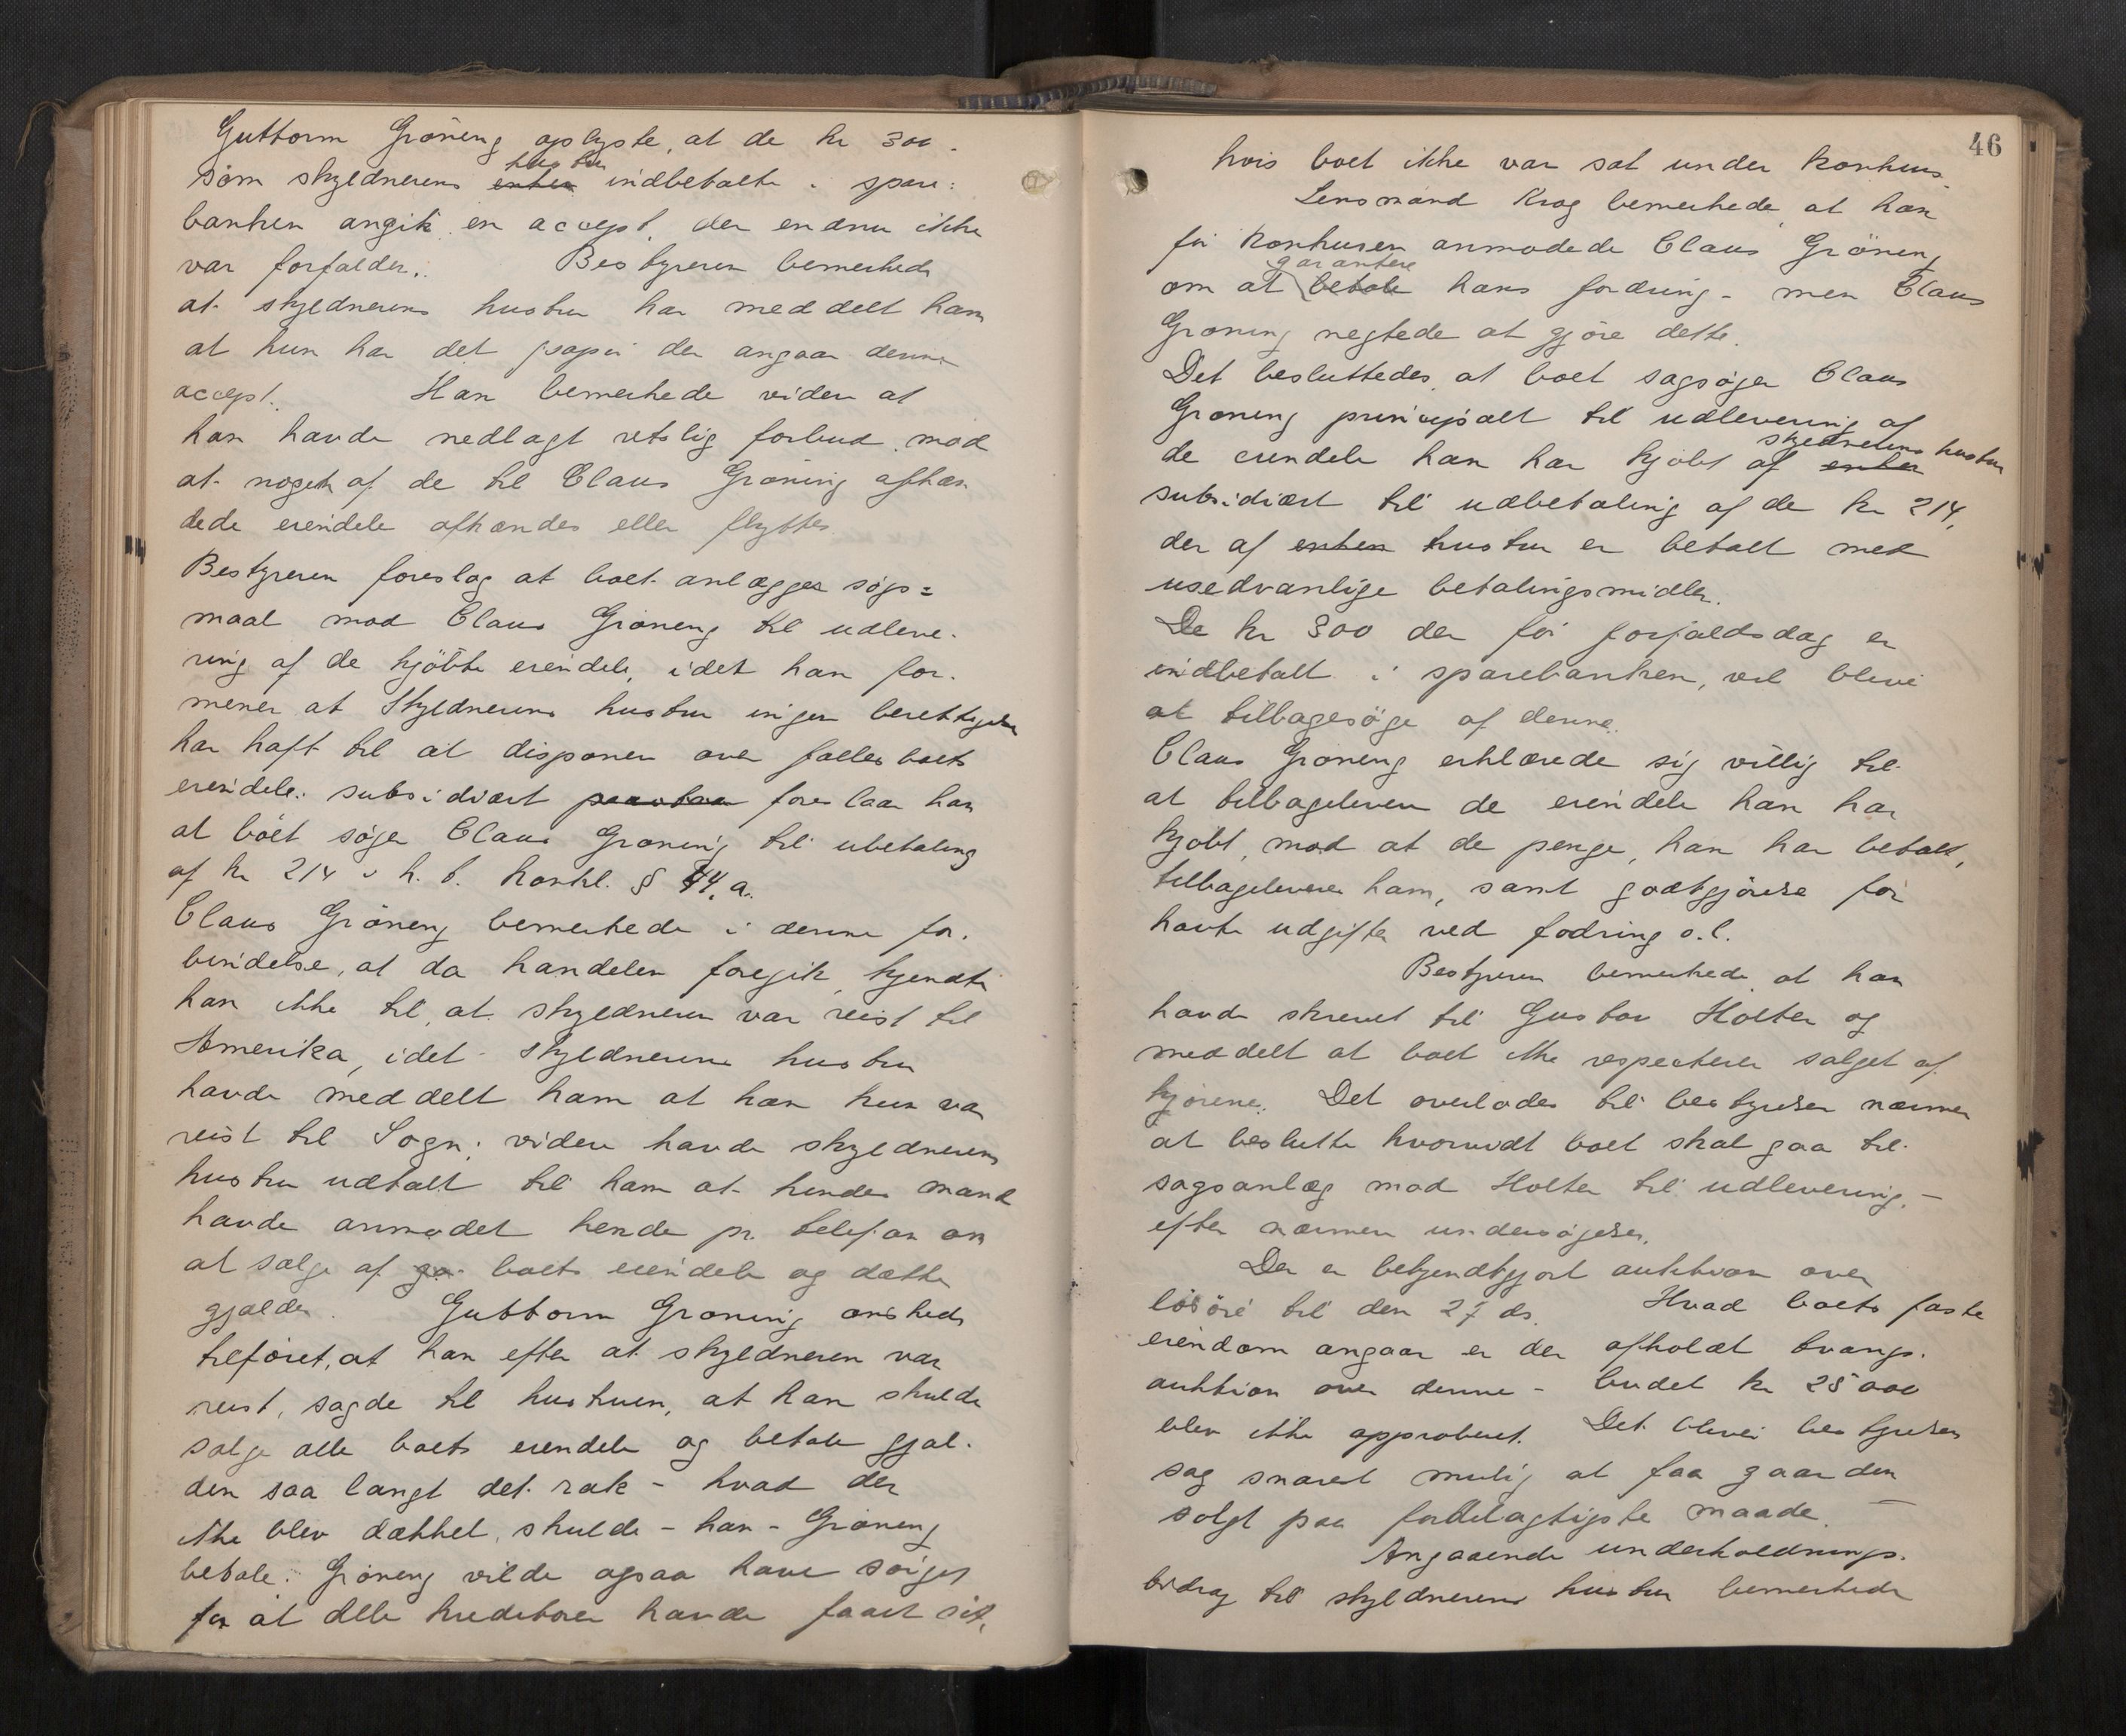 Guttorm Gröneng oplyste, at de kr 300.
som skyldnerens enken hustru indbetalte i spare=
banken angik en accept, der endnu ikke
var forfalden. Bestyreren bemerkede
at skyldnerens hustru har meddelt ham
at hun har det papir der angaar denne
accept. Han bemerkede videre at
han havde nedlagt retslig forbud mod
at noget af de til Claus Gröning afhæn
dede eiendele afhændes eller flyttes
Bestyreren foreslog at boet anlægger søgs=
maal mod Claus Gröneng til udleve-
ring af de kjöbte eiendele, idet han for-
mener at Skyldnerens hustru ingen berettigelse
har haft til at disponere over fællesboets
eiendele. subsidiært foreslaar han
at boet søger Claus Gröning til ubetaling
af kr 214 h. t. konkl. § 44. a.
Claus Gröneng bemerkede i denne for-
bindelse, at da handelen foregik, kjendte
han ikke til, at skyldneren var reist til
Amerika, idet skyldnerens hustru
havde meddelt ham at han kun var
reist til Sogn; videre havde skyldnerens
hustru udtalt til ham at hendes mand
havde anmodet hende pr. telefon om
at sælge af boets eiendele og dække
gjælden. Guttorm Gröning ønskede
tilføiet, at han efter at skyldneren var
reist, sagde til hustruen, at han skulde
sælge alle boets eiendele og betale gjæl-
den saa langt det rak - hvad der
ikke blev dækket, skulde - han - Gröneng
betale. Gröneng vilde ogsaa have sörget
for at alle kreditorer havde faaet sit,
46
hvis boet ikke var sat under konkurs.
Lensmand Krog bemerkede, at han
för konkursen anmodede Claus Gröneng
garantere
om at betale hans fordring - men Claus
Gröning negtede at gjöre dette.
Det besluttedes, at boet sagsøger Claus
Gröneng principalt til udlevering af
skyldnerens hustru
de eiendele han har kjöbt af enken
subsidiært til udbetaling af de kr 214,
der af enken hustru er betalt med
usedvanlige betalingsmidler.
De kr 300 der för forfaldsdag er
indbetalt i sparebanken, vil blive
at tilbagesöge af denne.
Claus Gröneng erklærede sig villig til
at tilbagelevere de eiendele han har
kjöbt, mod at de penge, han har betalt,
tilbageleveres ham, samt godtgjörelse for
havte udgifter ved fodring o.l.
Bestyreren bemerkede, at han
havde skrevet til Gustav Holter og
meddelt at boet ikke respekterer salget af
kjörene. Det overlades til bestyrelsen nærmere
at beslutte hvorvidt boet skal gaa til
sagsanlæg mod Holter til udlevering, -
efter nærmere undersögelser.
Der er bekjendtgjort auktion over
lösöre til den 27 ds. Hvad boets faste
eiendom angaar er der afholdt tvangs-
auktion over denne - budet kr 25000
blev ikke approberet. Det blever bestyrelsens
sag snarest mulig at faa gaarden
solgt paa fordelagtigste maade. -
Angaaende underholdnings-
bidrag til skyldnerens hustru bemerkede